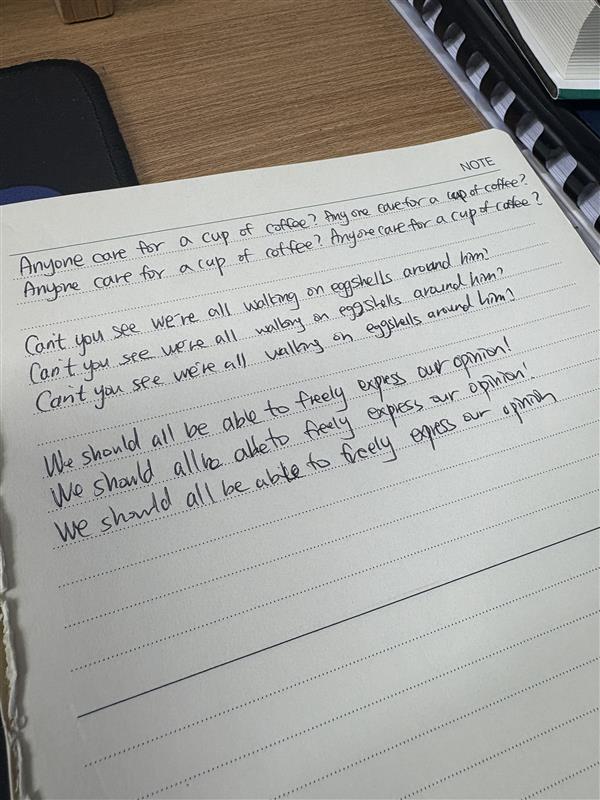 NOTE
Anyone care for a cup of coffee? Anyone care for a cup of coffee?
Anyone care for a cup of coffee? Anyone care for a cup of coffee?
Can't you see we're all walking on eggshells around him?
Can't you see we're all walking on eggshells around him?
Can't you see we're all walking on eggshells around him?
We should all be able to freely express our opinion!
We should all be able to freely express our opinion!
We should all be able to freely express our opinion